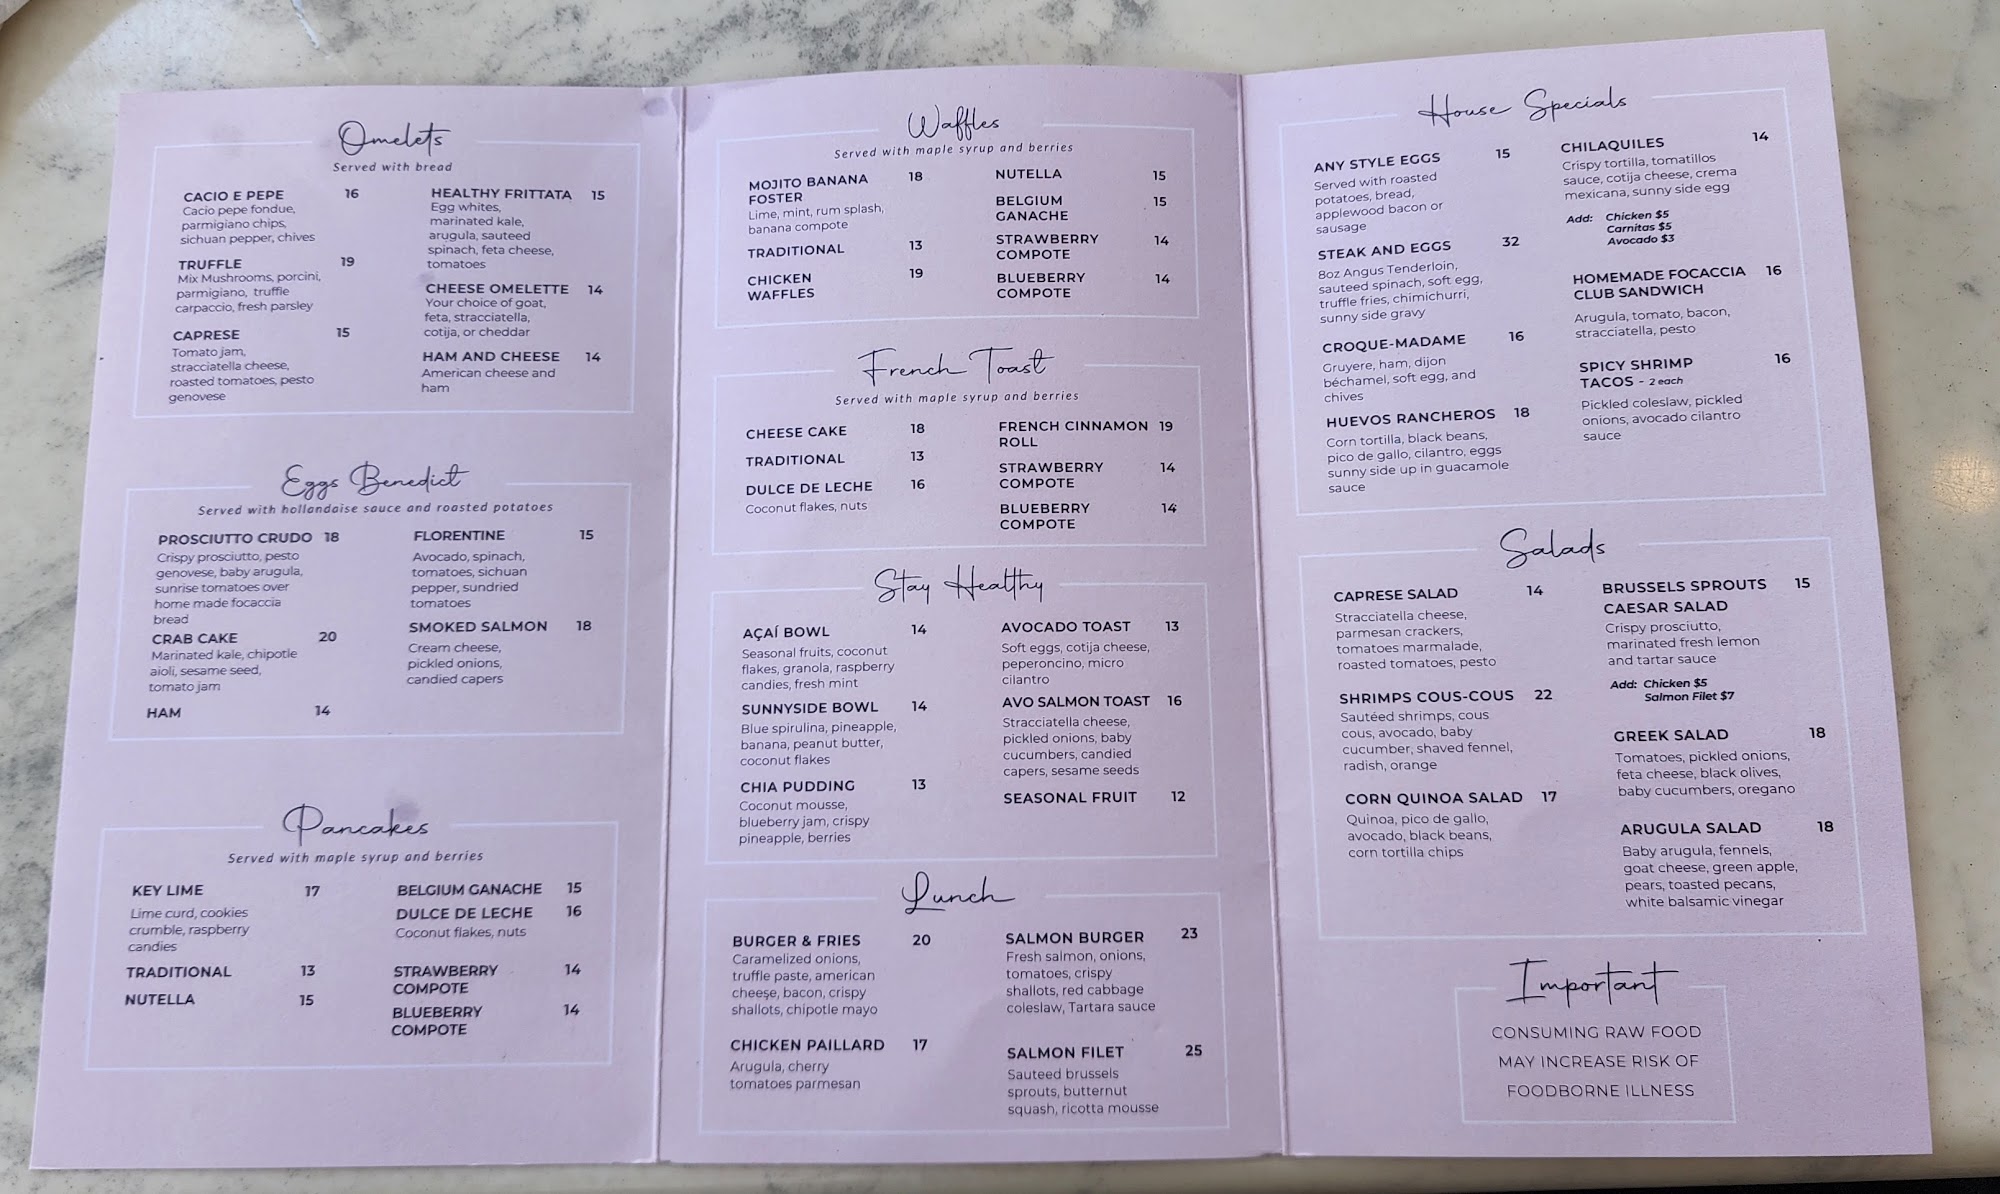 Omelets
Served with bread
CACIO E PEPE 16
Cacio pepe fondue,
parmigiano chips,
sichuan pepper, chives
TRUFFLE 19
Mix Mushrooms, porcini,
parmigiano, truffle
carpaccio, fresh parsley
CAPRESE 15
Tomato jam,
stracciatella cheese,
roasted tomatoes, pesto
genovese
HEALTHY FRITTATA 15
Egg whites,
marinated kale,
arugula, sauteed
spinach, feta cheese,
tomatoes
CHEESE OMELETTE 14
Your choice of goat,
feta, stracciatella,
cotija, or cheddar
HAM AND CHEESE 14
American cheese and
ham
Eggs Benedict
Served with hollandaise sauce and roasted potatoes
PROSCIUTTO CRUDO 18
Crispy prosciutto, pesto
genovese, baby arugula,
sunrise tomatoes over
home made focaccia
bread
CRAB CAKE 20
Marinated kale, chipotle
aioli, sesame seed,
tomato jam
HAM 14
FLORENTINE 15
Avocado, spinach,
tomatoes, sichuan
pepper, sundried
tomatoes
SMOKED SALMON 18
Cream cheese,
pickled onions,
candied capers
Pancakes
Served with maple syrup and berries
KEY LIME 17
Lime curd, cookies
crumble, raspberry
candies
TRADITIONAL 13
NUTELLA 15
BELGIUM GANACHE 15
DULCE DE LECHE 16
Coconut flakes, nuts
STRAWBERRY 14
COMPOTE
BLUEBERRY 14
COMPOTE
Waffles
Served with maple syrup and berries
MOJITO BANANA 18
FOSTER
Lime, mint, rum splash,
banana compote
TRADITIONAL 13
CHICKEN 19
WAFFLES
NUTELLA 15
BELGIUM 15
GANACHE
STRAWBERRY 14
COMPOTE
BLUEBERRY 14
COMPOTE
French Toast
Served with maple syrup and berries
CHEESE CAKE 18
TRADITIONAL 13
DULCE DE LECHE 16
Coconut flakes, nuts
FRENCH CINNAMON 19
ROLL
STRAWBERRY 14
COMPOTE
BLUEBERRY 14
COMPOTE
Stay Healthy
AÇAÍ BOWL 14
Seasonal fruits, coconut
flakes, granola, raspberry
candies, fresh mint
SUNNYSIDE BOWL 14
Blue spirulina, pineapple,
banana, peanut butter,
coconut flakes
CHIA PUDDING 13
Coconut mousse,
blueberry jam, crispy
pineapple, berries
AVOCADO TOAST 13
Soft eggs, cotija cheese,
peperoncino, micro
cilantro
AVO SALMON TOAST 16
Stracciatella cheese,
pickled onions, baby
cucumbers, candied
capers, sesame seeds
SEASONAL FRUIT 12
Lunch
BURGER & FRIES 20
Caramelized onions,
truffle paste, american
cheese, bacon, crispy
shallots, chipotle mayo
CHICKEN PAILLARD 17
Arugula, cherry
tomatoes parmesan
SALMON BURGER 23
Fresh salmon, onions,
tomatoes, crispy
shallots, red cabbage
coleslaw, Tartara sauce
SALMON FILET 25
Sauteed brussels
sprouts, butternut
squash, ricotta mousse
House Specials
ANY STYLE EGGS 15
Served with roasted
potatoes, bread,
applewood bacon or
sausage
STEAK AND EGGS 32
8oz Angus Tenderloin,
sauteed spinach, soft egg,
truffle fries, chimichurri,
sunny side gravy
CROQUE-MADAME 16
Gruyere, ham, dijon
béchamel, soft egg, and
chives
HUEVOS RANCHEROS 18
Corn tortilla, black beans,
pico de gallo, cilantro, eggs
sunny side up in guacamole
sauce
CHILAQUILES 14
Crispy tortilla, tomatillos
sauce, cotija cheese, crema
mexicana, sunny side egg
Add: Chicken $5
Carnitas $5
Avocado $3
HOMEMADE FOCACCIA 16
CLUB SANDWICH
Arugula, tomato, bacon,
stracciatella, pesto
SPICY SHRIMP 16
TACOS - 2 each
Pickled coleslaw, pickled
onions, avocado cilantro
sauce
Salads
CAPRESE SALAD 14
Stracciatella cheese,
parmesan crackers,
tomatoes marmalade,
roasted tomatoes, pesto
SHRIMPS COUS-COUS 22
Sautéed shrimps, cous
cous, avocado, baby
cucumber, shaved fennel,
radish, orange
CORN QUINOA SALAD 17
Quinoa, pico de gallo,
avocado, black beans,
corn tortilla chips
BRUSSELS SPROUTS 15
CAESAR SALAD
Crispy prosciutto,
marinated fresh lemon
and tartar sauce
Add: Chicken $5
Salmon Filet $7
GREEK SALAD 18
Tomatoes, pickled onions,
feta cheese, black olives,
baby cucumbers, oregano
ARUGULA SALAD 18
Baby arugula, fennels,
goat cheese, green apple,
pears, toasted pecans,
white balsamic vinegar
Important
CONSUMING RAW FOOD
MAY INCREASE RISK OF
FOODBORNE ILLNESS